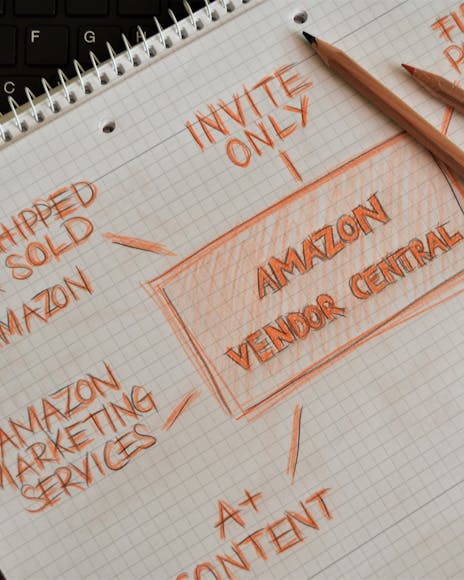 F G H
C
INVITE
ONLY
FI
P
HIPPED
SOLD
MAZON
AMAZON
VENDOR CENTRAL
AMAZON
MARKETING
SERVICES
A+
CONTENT